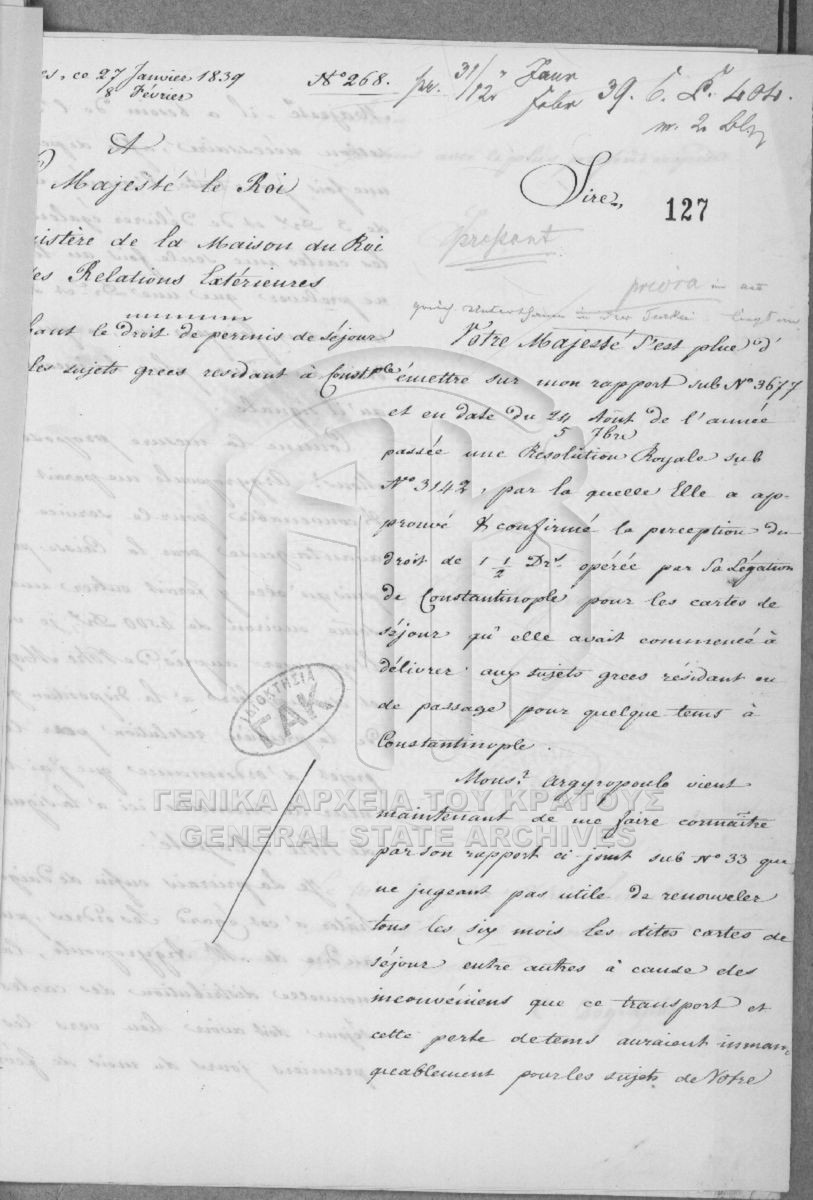 es, ce 27 Janvier 1839
8 Février
Nº 268.
pr. 31/12 Janr
Febr 39. E. L. 404.
A
Majesté le Roi
Sire,
127
nistère de la Maison du Roi
des Relations Extérieures
prepont
priora
hant le droit de permis de séjour
les sujets grecs residant à Constple
Votre Majesté s'est plue d'
émettre sur mon rapport sub Nº 3677
et en date du 24 Août de l'année
5 7bre
passée une Resolution Royale sub
Nº 3142, par la quelle Elle a ap-
prouvé & confirmé la perception du
droit de 1 1/2 Drs. opérée par Sa Légation
de Constantinople pour les cartes de
séjour qu'elle avait commencé à
délivrer aux sujets grecs résidant ou
de passage pour quelque tems à
Constantinople.
ΙΔΙΟΚΤΗΣΙΑ
ΓΑΚ
Monsr. Argyropoulo vient
ΓΕΝΙΚΑ ΑΡΧΕΙΑ ΤΟΥ ΚΡΑΤΟΥΣ
maintenant de me faire connaître
GENERAL STATE ARCHIVES
par son rapport ci joint sub Nº 33 que
ne jugeant pas utile de renouveler
tous les six mois les dites cartes de
séjour entre autres à cause des
inconvéniens que ce transport et
cette perte de tems auraient inman-
queablement pour les sujets de Votre